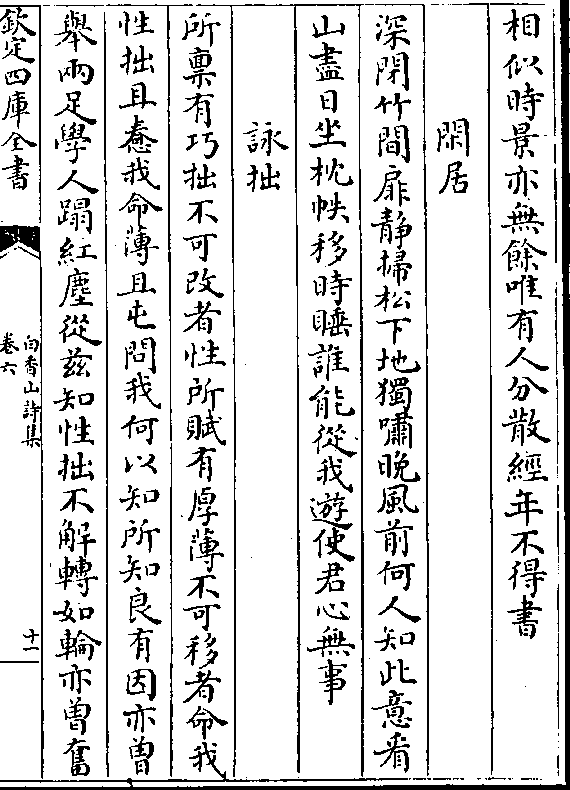 相似時景亦無餘唯有人分散經年不得書
閑居
深閉竹間扉静掃松下地獨嘯晚風前何人知此意看
山盡日坐枕帙移時睡誰能從我遊使君心無事
詠拙
所禀有巧拙不可改者性所賦有厚薄不可移者命我
性拙且惷我命薄且屯問我何以知所知良有因亦曾
舉兩足學人蹋紅塵從兹知性拙不解轉如輪亦曾奮
欽定四庫全書
白香山詩集
卷六
十一